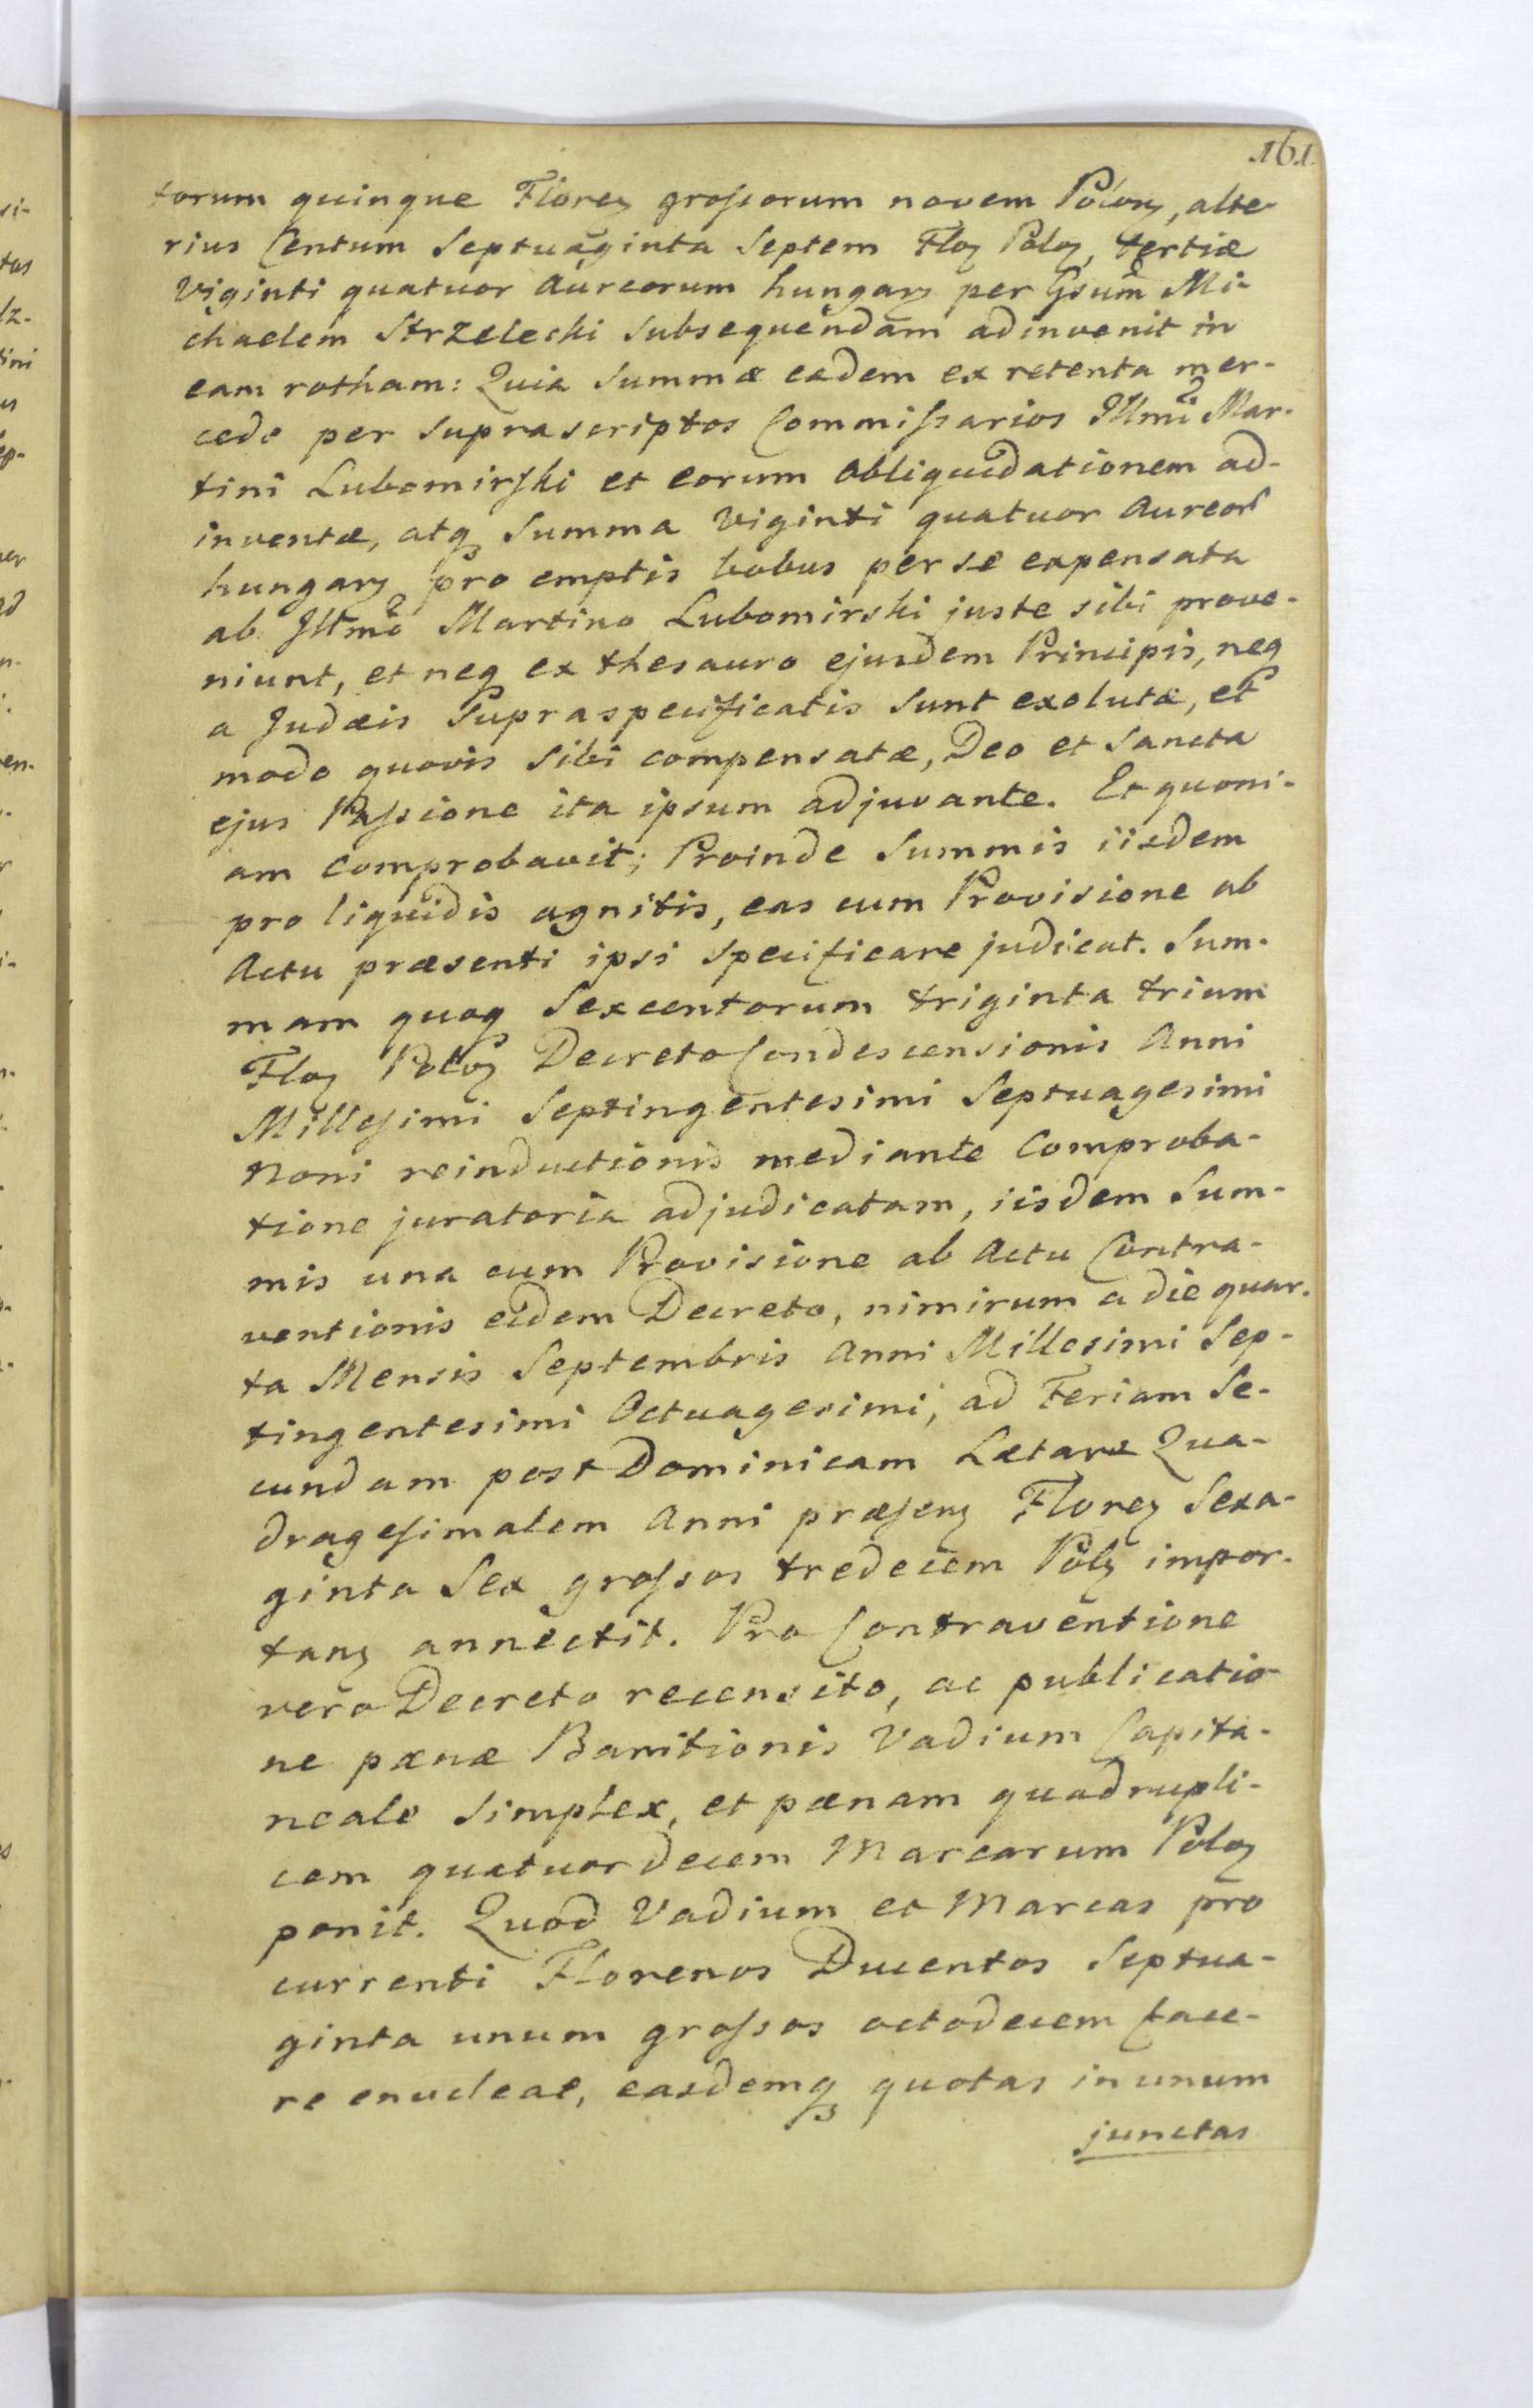 161.
torum quinque Floreꝫ grossorum novem Poloꝫ, alte-
rius Centum Septuaginta Septem Floꝫ Poloꝫ, tertiæ
Viginti quatuor Aureorum hungarꝫ per Gsum Mi-
chaelem Strzelecki subsequendam adinvenit in
eam rotham: Quia Summæ eædem ex retenta mer-
cede per suprascriptos Commissarios Illmi Mar-
tini Lubomirski et eorum Obliquidationem ad-
inventæ, atqꝫ Summa Viginti quatuor Aureor
hungarꝫ pro emptis bobus per se expensata
ab Illmo Martino Lubomirski juste sibi prove-
niunt, et neqꝫ ex thesauro ejusdem Principis, neqꝫ
a Judæis Supraspecificatis sunt exolutæ, et
modo quovis sibi compensatæ, Deo et Sancta
ejus Passione ita ipsum adjuvante. Et quoni-
am comprobavit; Proinde Summis iisdem
pro liquidis agnitis, eas cum Provisione ab
Actu præsenti ipsi specificare judicat. Sum-
mam quoqꝫ Sexcentorum triginta trium
Floꝫ Poloꝫ Decreto Condescensionis Anni
Millesimi Septingentesimi Septuagesimi
Noni reinductionis mediante Comproba-
tione juratoria adjudicatam, iisdem Sum-
mis una cum Provisione ab Actu Contra-
ventionis eidem Decreto, nimirum a die quar-
ta Mensis Septembris Anni Millesimi Sep-
tingentesimi Octuagesimi, ad Feriam Se-
cundam post Dominicam Lætare Qua-
dragesimalem Anni præsenꝫ Floreꝫ Sexa-
ginta Sex grossos tredecem Polꝫ impor-
tanꝫ annectit. Pro Contraventione
vero Decreto recensito, ac publicatio-
ne pænæ Banitionis Vadium Capita-
neale simplex, et pænam quadrupli-
cem quatuordecem Marcarum Poloꝫ
ponit. Quod Vadium et Marcas pro
currenti Florenos Ducentos Septua-
ginta unum grossos octodecem face-
re enucleat, easdemqꝫ quotas in unum
junctas